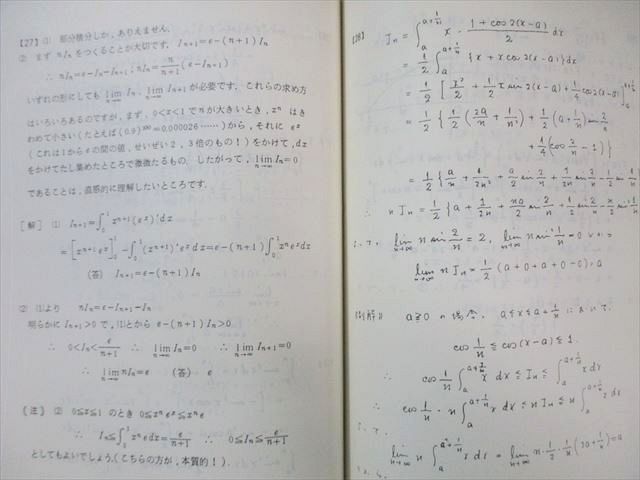 【27】 ⑴ 部分積分しか,ありえません.
② まず nIₙ をつくることが大切です. Iₙ₊₁=e-(n+1)Iₙ
∴ nIₙ=e-Iₙ-Iₙ₊₁, nIₙ=n/(n+1)(e-Iₙ₊₁)
いずれの形にしても lim[n→∞] Iₙ, lim[n→∞] Iₙ₊₁ が必要です. これらの求め方
はいろいろあるのですが,まず,0<x<1でnが大きいとき,xⁿ はき
わめて小さい(たとえば(0.9)¹⁰⁰=0.000026……)から,それに eˣ
(これは1からeの間の値,せいぜい2,3倍のもの!)をかけて,dx
をかけてたし集めたところで微微たるもの. したがって,lim[n→∞] Iₙ=0
であることは,直感的に理解したいところです.
[解] ⑴ Iₙ₊₁=∫₀¹ xⁿ⁺¹(eˣ)'dx
=[xⁿ⁺¹eˣ]₀¹-∫₀¹(xⁿ⁺¹)'eˣdx=e-(n+1)∫₀¹xⁿeˣdx
(答) Iₙ₊₁=e-(n+1)Iₙ
② ⑴より nIₙ=e-Iₙ₊₁-Iₙ
明らかに Iₙ₊₁>0 で,⑴とから e-(n+1)Iₙ>0
∴ 0<Iₙ<e/(n+1) ∴ lim[n→∞] Iₙ=0 ∴ lim[n→∞] Iₙ₊₁=0
∴ lim[n→∞] nIₙ=e (答) e
《注》 ② 0≦x≦1 のとき 0≦xⁿeˣ≦xⁿe
∴ Iₙ≦∫₀¹ xⁿedx=e/(n+1) ∴ 0≦Iₙ≦e/(n+1)
としてもよいでしょう.(こちらの方が,本質的!).
[28] Jₙ=∫ₐ^(a+1/n) x・(1+cos2(x-a))/2 dx
=1/2∫ₐ^(a+1/n){x+xcos2(x-a)}dx
=1/2[x²/2+1/2 x sin2(x-a)+1/4 cos2(x-a)]ₐ^(a+1/n)
=1/2{1/2(2a/n+1/n²)+1/2(a+1/n)sin 2/n
+1/4(cos 2/n-1)}
=1/2{a/n+1/2n²+a/2 sin 2/n+1/2n sin 2/n-1/2 sin
∴ nJₙ=1/2{a+1/2n+na/2 sin 2/n+1/2 sin 2/n
lim[n→∞] n sin 2/n=2, lim[n→∞] n sin² 1/n=0
lim[n→∞] nJₙ=1/2(a+0+a+0-0)=a
(別解) a≧0 の場合, a≦x≦a+1/n において
cos 1/n≦cos(x-a)≦1.
∴ cos 1/n∫ₐ^(a+1/n) x dx≦Jₙ≦∫ₐ^(a+1/n) x dx
∴ cos 1/n・n∫ₐ^(a+1/n) x dx≦nJₙ≦n∫ₐ^(a+1/n) x dx
lim[n→∞] n∫ₐ^(a+1/n) x dx=lim[n→∞] n・1/2・1/n(2a+1/n)=a